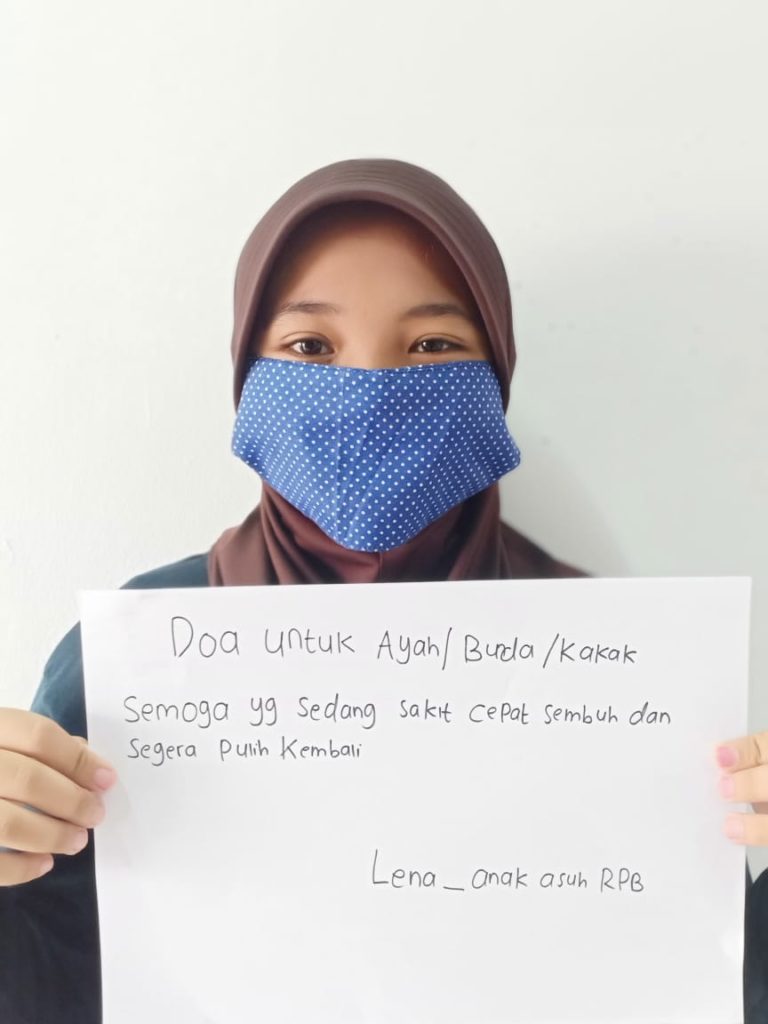 Doa untuk Ayah/Bunda/Kakak
Semoga yg sedang sakit cepat sembuh dan
segera pulih kembali
Lena_anak asuh RPB